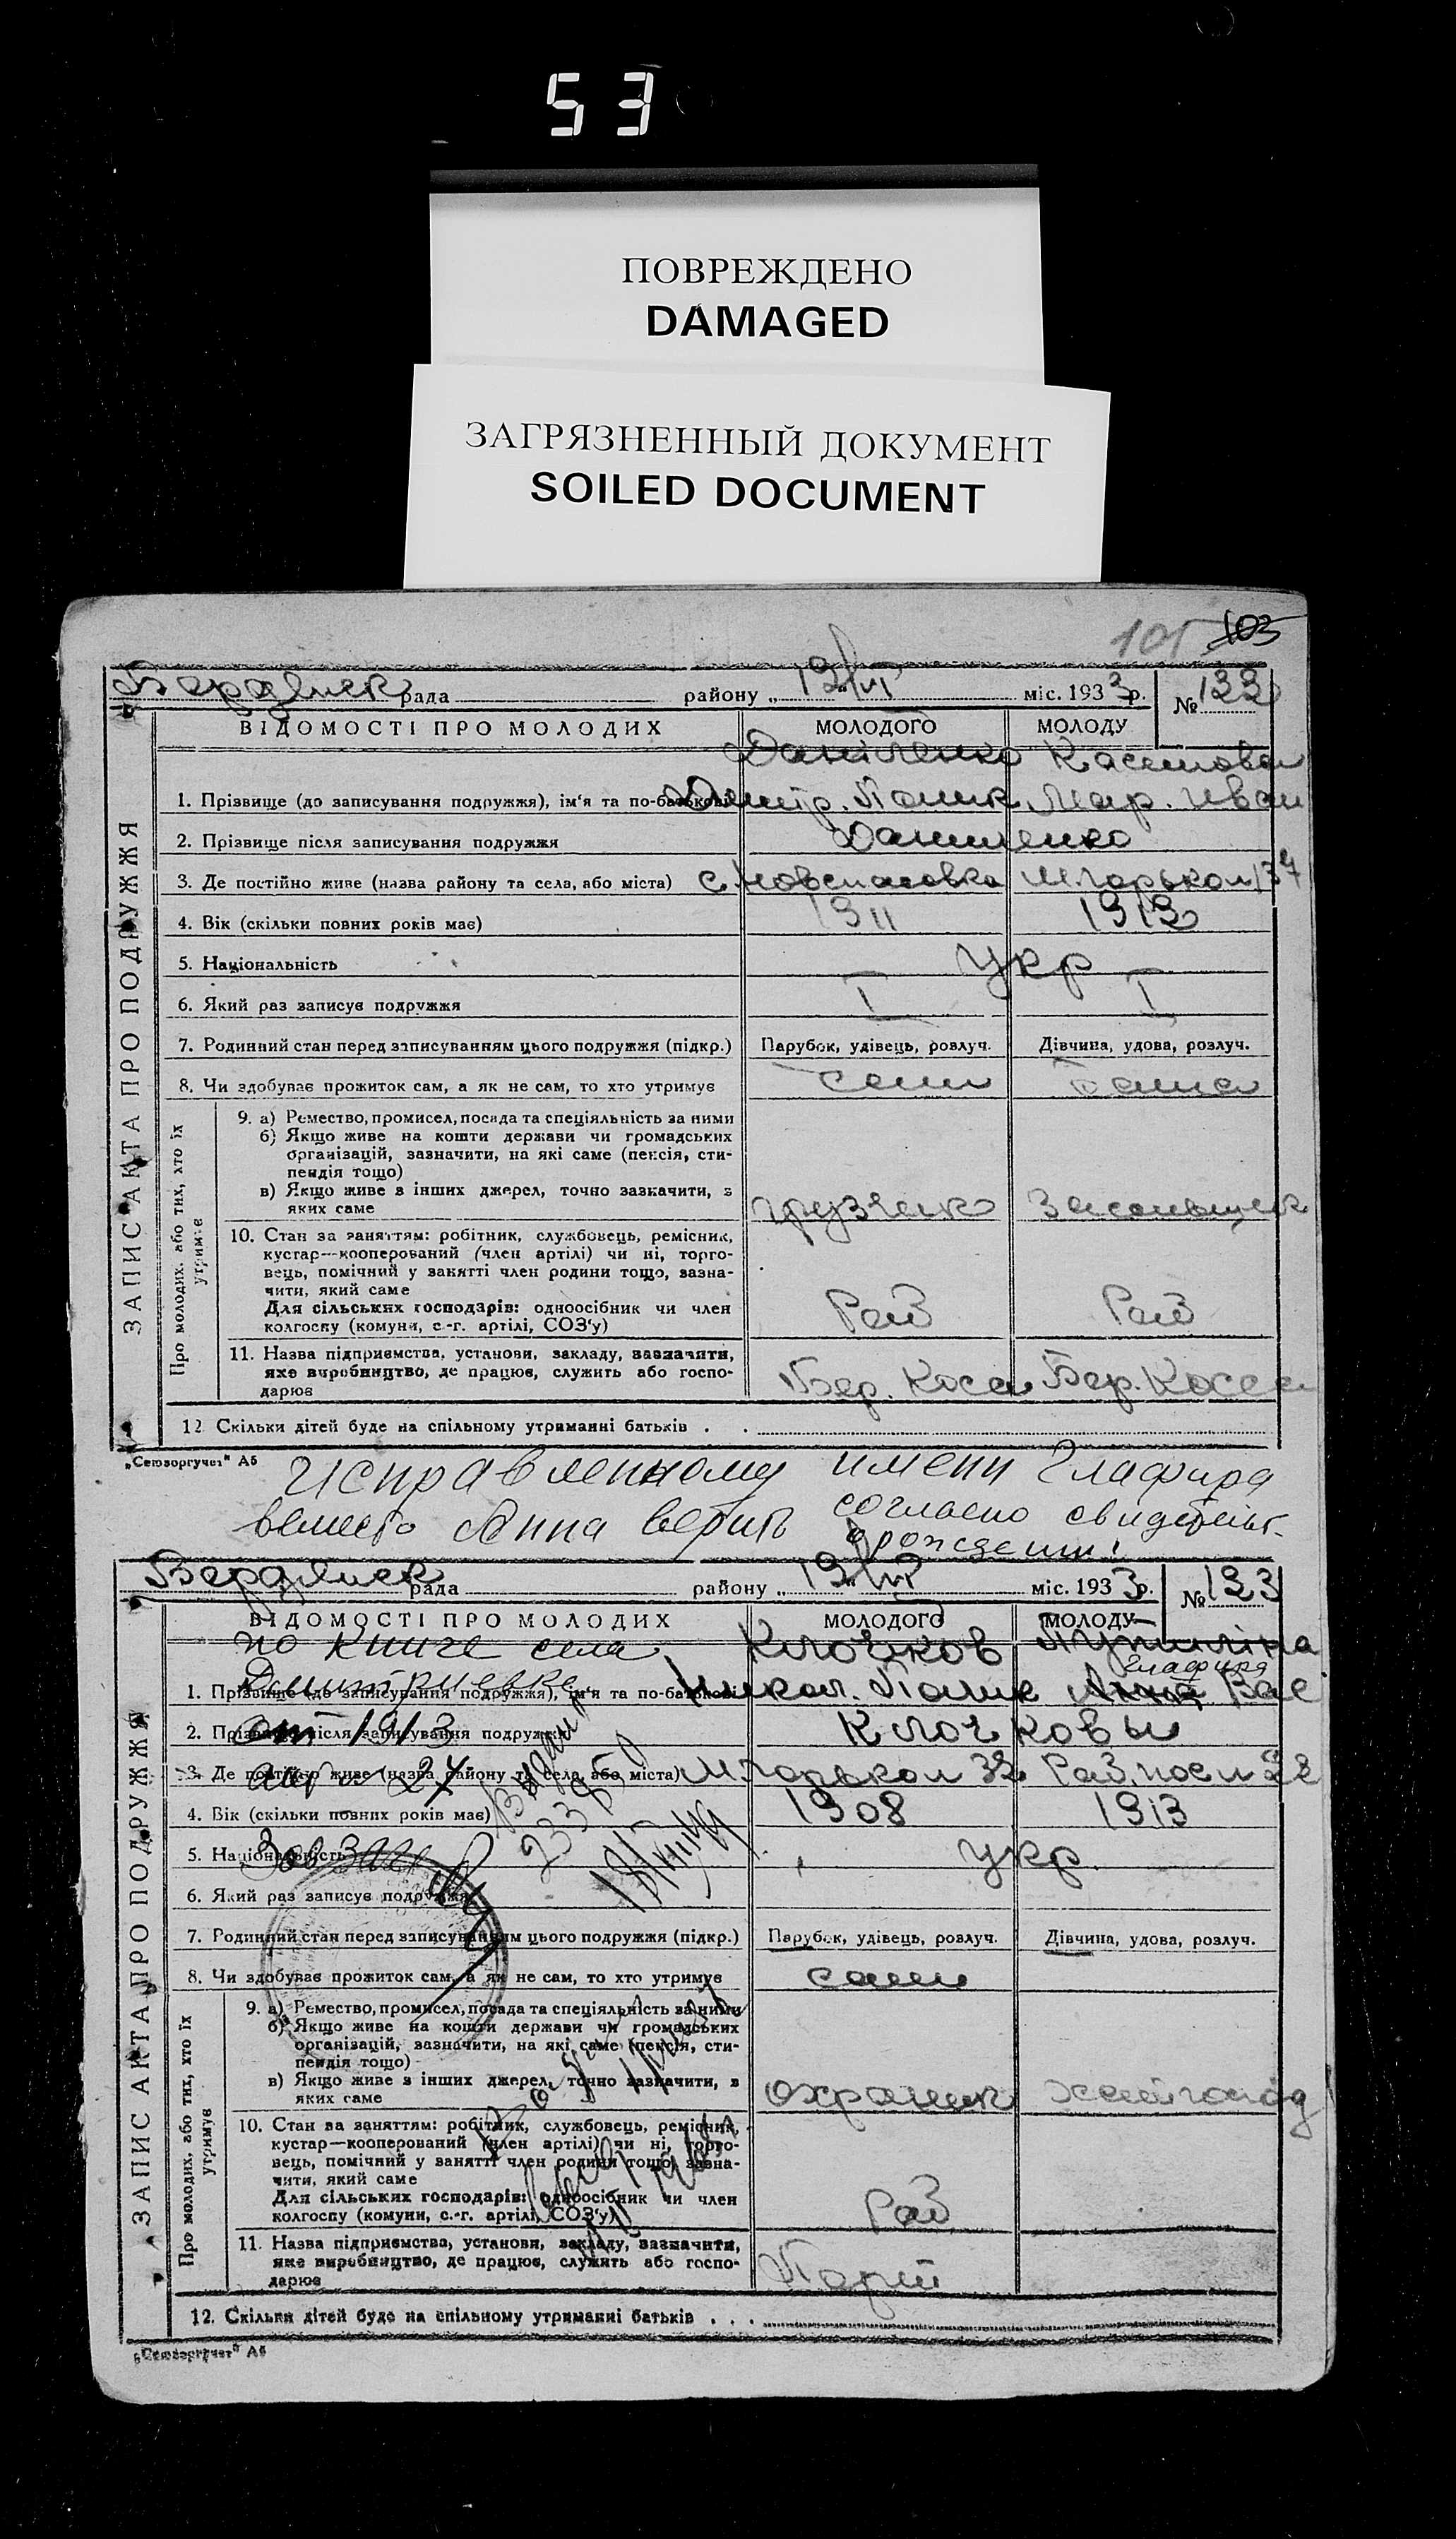 53
ПОВРЕЖДЕНО
DAMAGED
ЗАГРЯЗНЕННЫЙ ДОКУМЕНТ
SOILED DOCUMENT
103
Бердянськ рада району „ 19/VI міс. 1933 р. №
ВІДОМОСТІ ПРО МОЛОДИХ МОЛОДОГО МОЛОДУ
ЗАПИС АКТА ПРО ПОДРУЖЖЯ
Даніленко
1. Прізвище (до записування подружжя), ім'я та по-батькові Дмитр. Мар. Иван
2. Прізвище після записування подружжя Даниленко
3. Де постійно живе (назва району та села, або міста) с. Новспасовка М. Горького
4. Вік (скільки повних років має) 1911 1912
5. Національність Укр
6. Який раз записує подружжя I I
7. Родинний стан перед записуванням цього подружжя (підкр.) Парубок, удівець, розлуч. Дівчина, удова, розлуч.
8. Чи здобуває прожиток сам, а як не сам, то хто утримує сам сама
Про молодих, або тих, хто їх утримує
9. а) Ремество, промисел, посада та спеціяльність за ними
б) Якщо живе на кошти держави чи громадських
організацій, зазначити, на які саме (пенсія, сти-
пендія тощо)
в) Якщо живе з інших джерел, точно зазначити, з
яких саме грузчик
10. Стан за заняттям: робітник, службовець, ремісник,
кустар—кооперований (член артілі) чи ні, торго-
вець, помічний у занятті член родини тощо, зазна-
чити, який саме
Для сільських господарів: одноосібник чи член
колгоспу (комуни, с.-г. артілі, СОЗ'у) Раб Раб
11. Назва підприємства, установи, закладу, зазначити,
яке виробництво, де працює, служить або госпо-
дарює Бер. Коса Бер. Коса
12. Скільки дітей буде на спільному утриманні батьків
„Союзоргучет“ А5
Исправленному имени Глафира
вместо Анна верить согласно свидетельст.
о рождении
Бердянск рада району „ 19/VI міс. 1933 р. № 123
ВІДОМОСТІ ПРО МОЛОДИХ МОЛОДОГО МОЛОДУ
ЗАПИС АКТА ПРО ПОДРУЖЖЯ
по книге села Клочков
Глафира
Дмитриевка
1. Прізвище (до записування подружжя), ім'я та по-батькові Никол. Анна Вас
2. Прізвище після записування подружжя Клочковы
от 1913
3. Де постійно живе (назва району та села, або міста) М. Горького 32 Раб. посл 22
4. Вік (скільки повних років має) 1908 1913
5. Національність Укр.
6. Який раз записує подружжя
7. Родинний стан перед записуванням цього подружжя (підкр.) Парубок, удівець, розлуч. Дівчина, удова, розлуч.
8. Чи здобуває прожиток сам, а як не сам, то хто утримує сам
Про молодих, або тих, хто їх утримує
9. а) Ремество, промисел, посада та спеціяльність за ними
б) Якщо живе на кошти держави чи громадських
організацій, зазначити, на які саме (пенсія, сти-
пендія тощо)
в) Якщо живе з інших джерел, точно зазначити, з
яких саме охраник
10. Стан за заняттям: робітник, службовець, ремісник,
кустар—кооперований (член артілі) чи ні, торго-
вець, помічний у занятті член родини тощо, зазна-
чити, який саме
Для сільських господарів: одноосібник чи член
колгоспу (комуни, с.-г. артілі, СОЗ'у) Раб
11. Назва підприємства, установи, закладу, зазначити,
яке виробництво, де працює, служить або госпо-
дарює
12. Скільки дітей буде на спільному утриманні батьків
„Союзоргучет“ А5